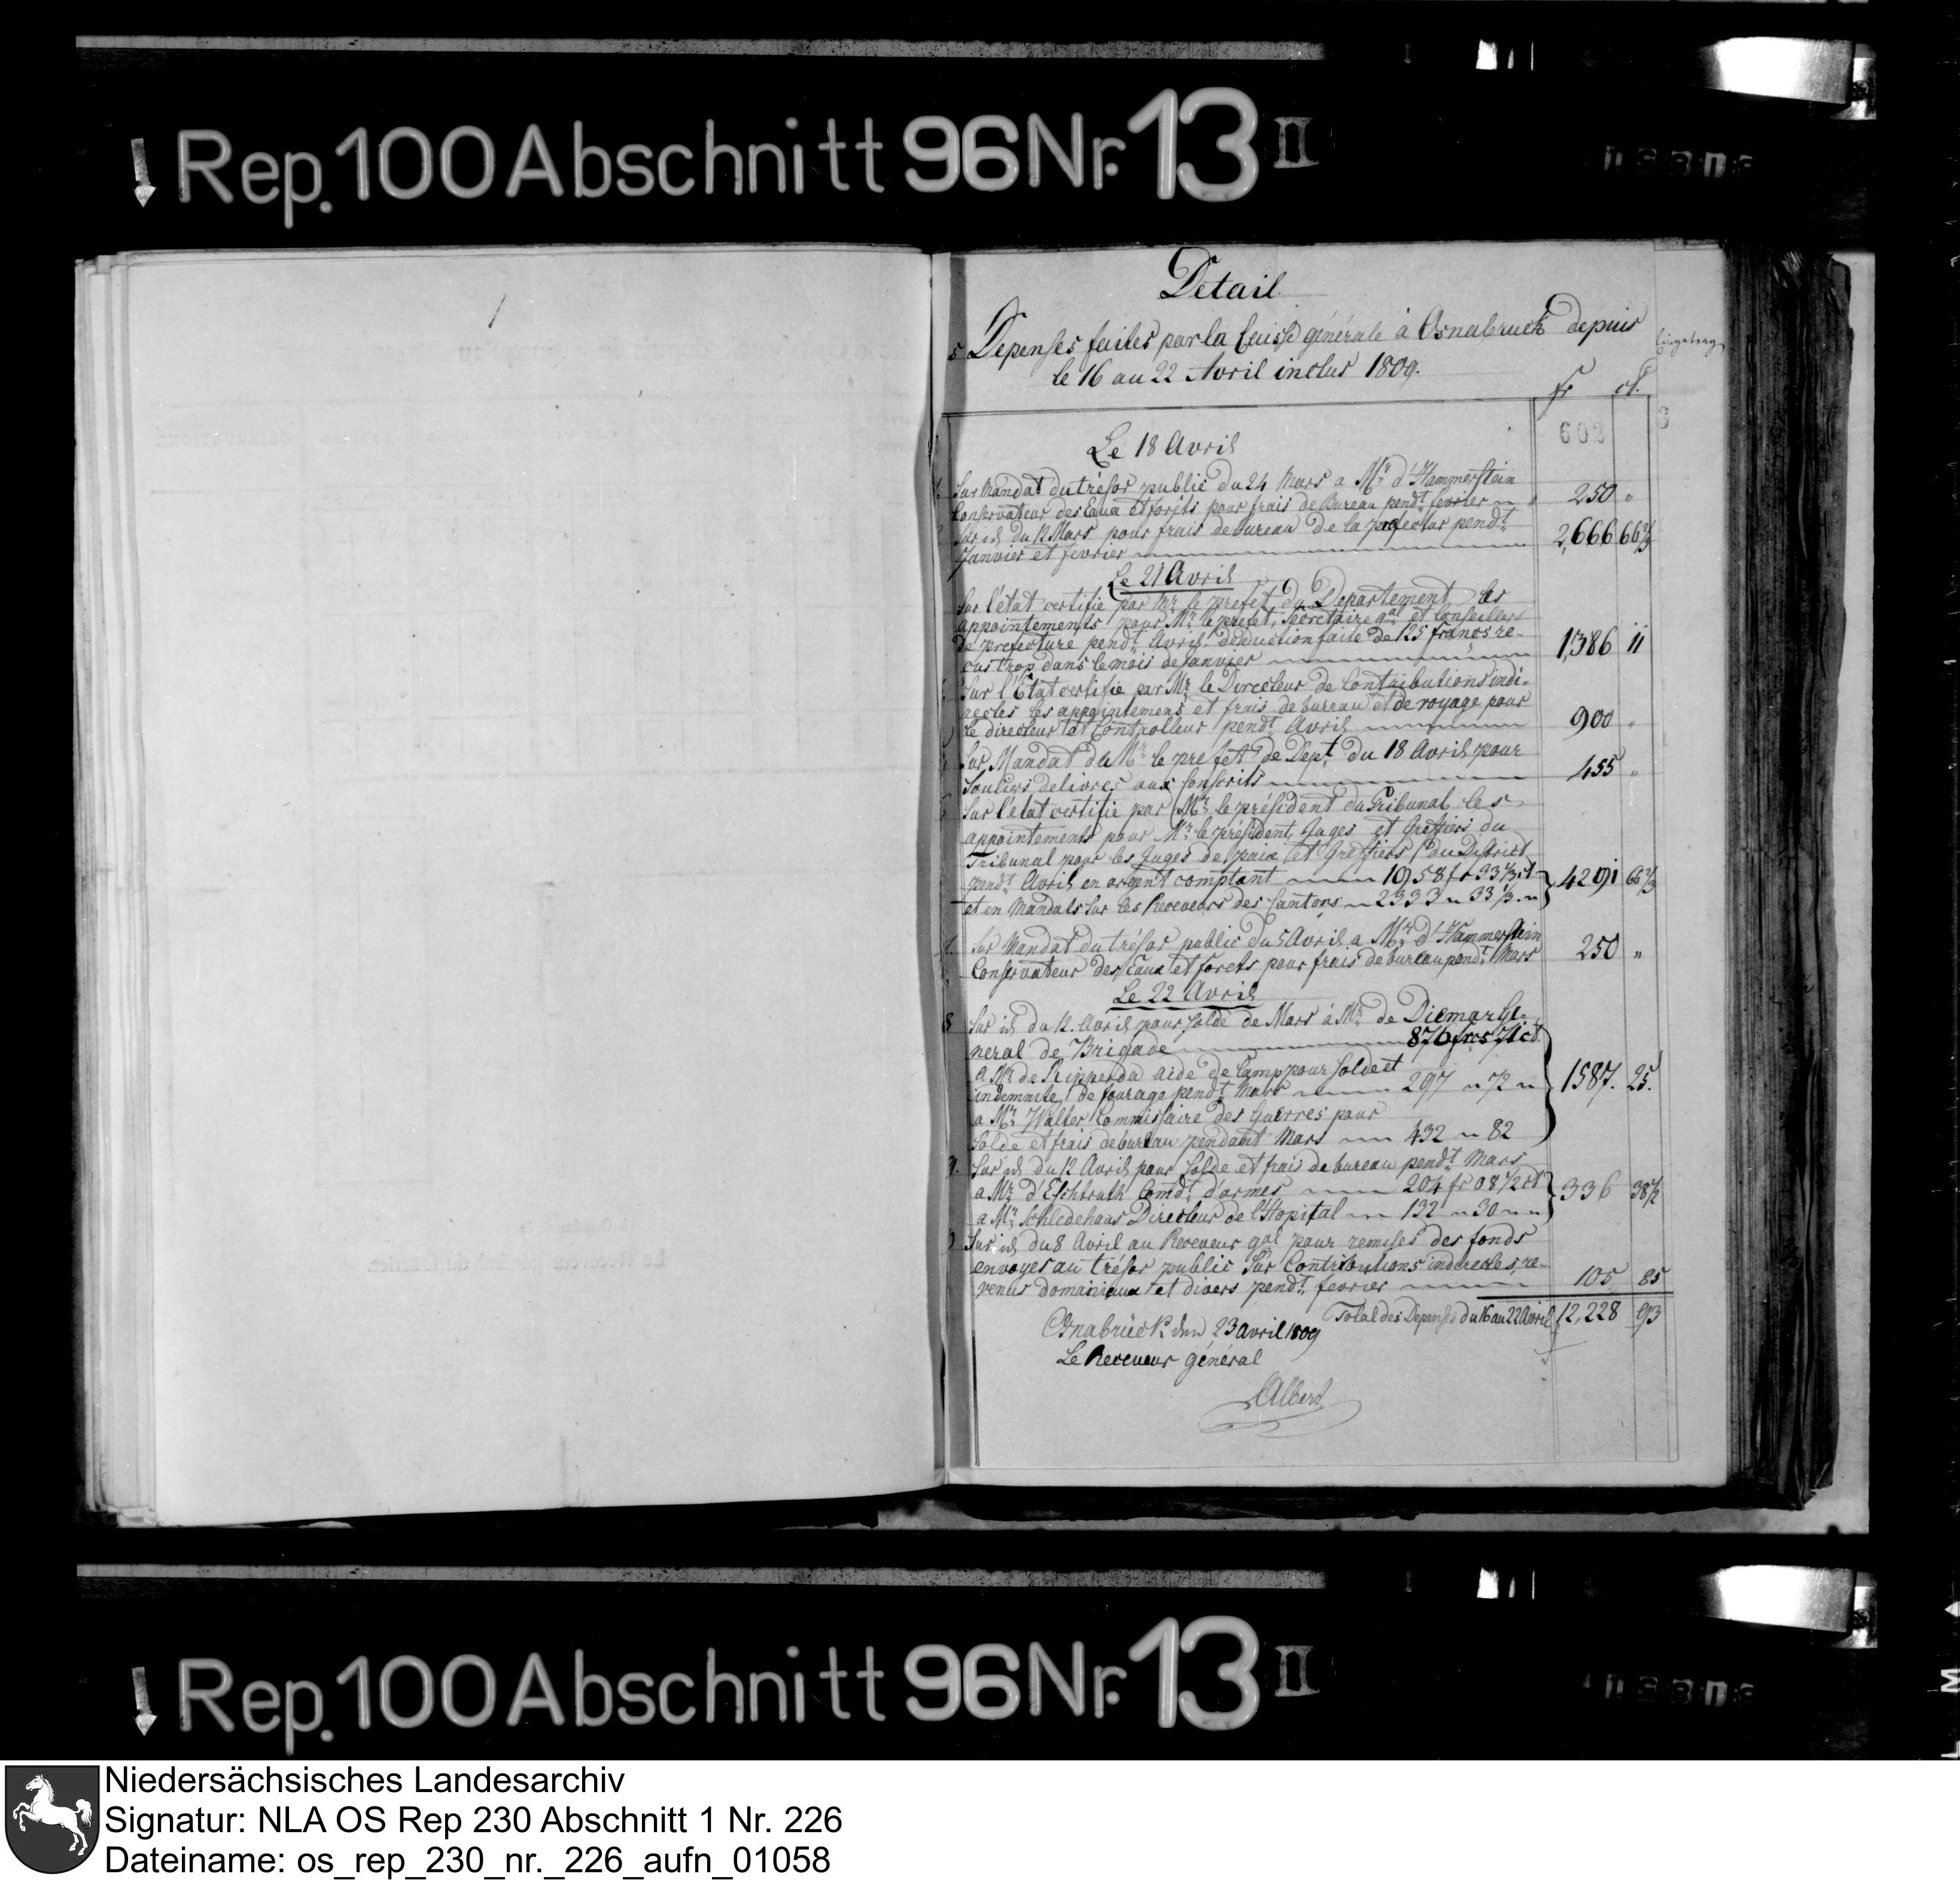 Rep. 100 Abschnitt 96 Nr. 13 II
Detail
Depenses faites par la Caisse générale à Osnabruck depuis
le 16 au 22 Avril inclus 1809.
Eingetrag
fr ct.
602
Le 18 Avril
Sur Mandat du trésor public du 24 Mars a Mr. d'Hammerstein
Conservateur des Eaux et forêts pour frais de Bureau pendt. fevrier " 250 "
Sur id du 12 Mars pour frais de bureau de la prefectur pendt.
Janvier et fevrier 2,666 66 2/3
Le 21 Avril
Sur l'état certifie par Mr. le prefet du Departement les
appointements pour Mr. le prefet, Secretaire gal. et Conseillers
de prefecture pendt. Avril. deduction faite de 125 francs re-
cus trop dans le mois de Janvier 1,386 11
Sur l'État certifie par Mr. le Directeur de Contributions indi-
rectes les appointemens et frais de bureau et de voyage pour
le directeur et Controlleur pendt. Avril 900 "
Sur Mandat de Mr. le prefet de Dept. du 18 Avril pour
Souliers delivres aux Conscrits 455 "
Sur l'etat certifie par Mr. le président du Tribunal les
appointements pour Mr. le président, Juges et Greffiers du
Tribunal pour les Juges de paix et Greffiers du District
pendt. Avril en argent comptant 1958 fr 33 1/3 ct
et en Mandats sur les Receveurs des Cantons " 2333 " 33 1/3 " 4291 66 2/3
Sur Mandat du trésor public du 5 Avril a Mr. d'Hammerstein
Conservateur des Eaux et forets pour frais de bureau pendt. Mars 250 "
Le 22 Avril
8 Sur id du 12. Avril pour solde de Mars à Mr. de Diemar Ge-
neral de Brigade 876 frcs 71 ct.
a Mr. de Ripperda aide de Camp pour Solde et
indemnite de fourage pendt. Mars 297 " 72 " 1587. 25.
a Mr. Walter Commissaire des Guerres pour
Solde et frais de bureau pendant Mars 432 " 82
9. Sur id du 12 Avril pour Solde et frais de bureau pendt. Mars
a Mr. d'Eschtruth Comdt. d'armes 204 fr 08 1/2 ct
a Mr. Schledehaus Directeur de l'Hopital 132 " 30 " 336 38 1/2
Sur id du 8 Avril au Receveur gal pour remises des fonds
envoyes au trésor public Sur Contributions indirectes, re-
venus domaniaux et divers pendt. fevrier 105 85
Total des Depenses du 16 au 22 Avril 12,228 93
Osnabrück den 23 Avril 1809
Le Receveur général
Albers
Rep. 100 Abschnitt 96 Nr. 13 II
Niedersächsisches Landesarchiv
Signatur: NLA OS Rep 230 Abschnitt 1 Nr. 226
Dateiname: os_rep_230_nr._226_aufn_01058